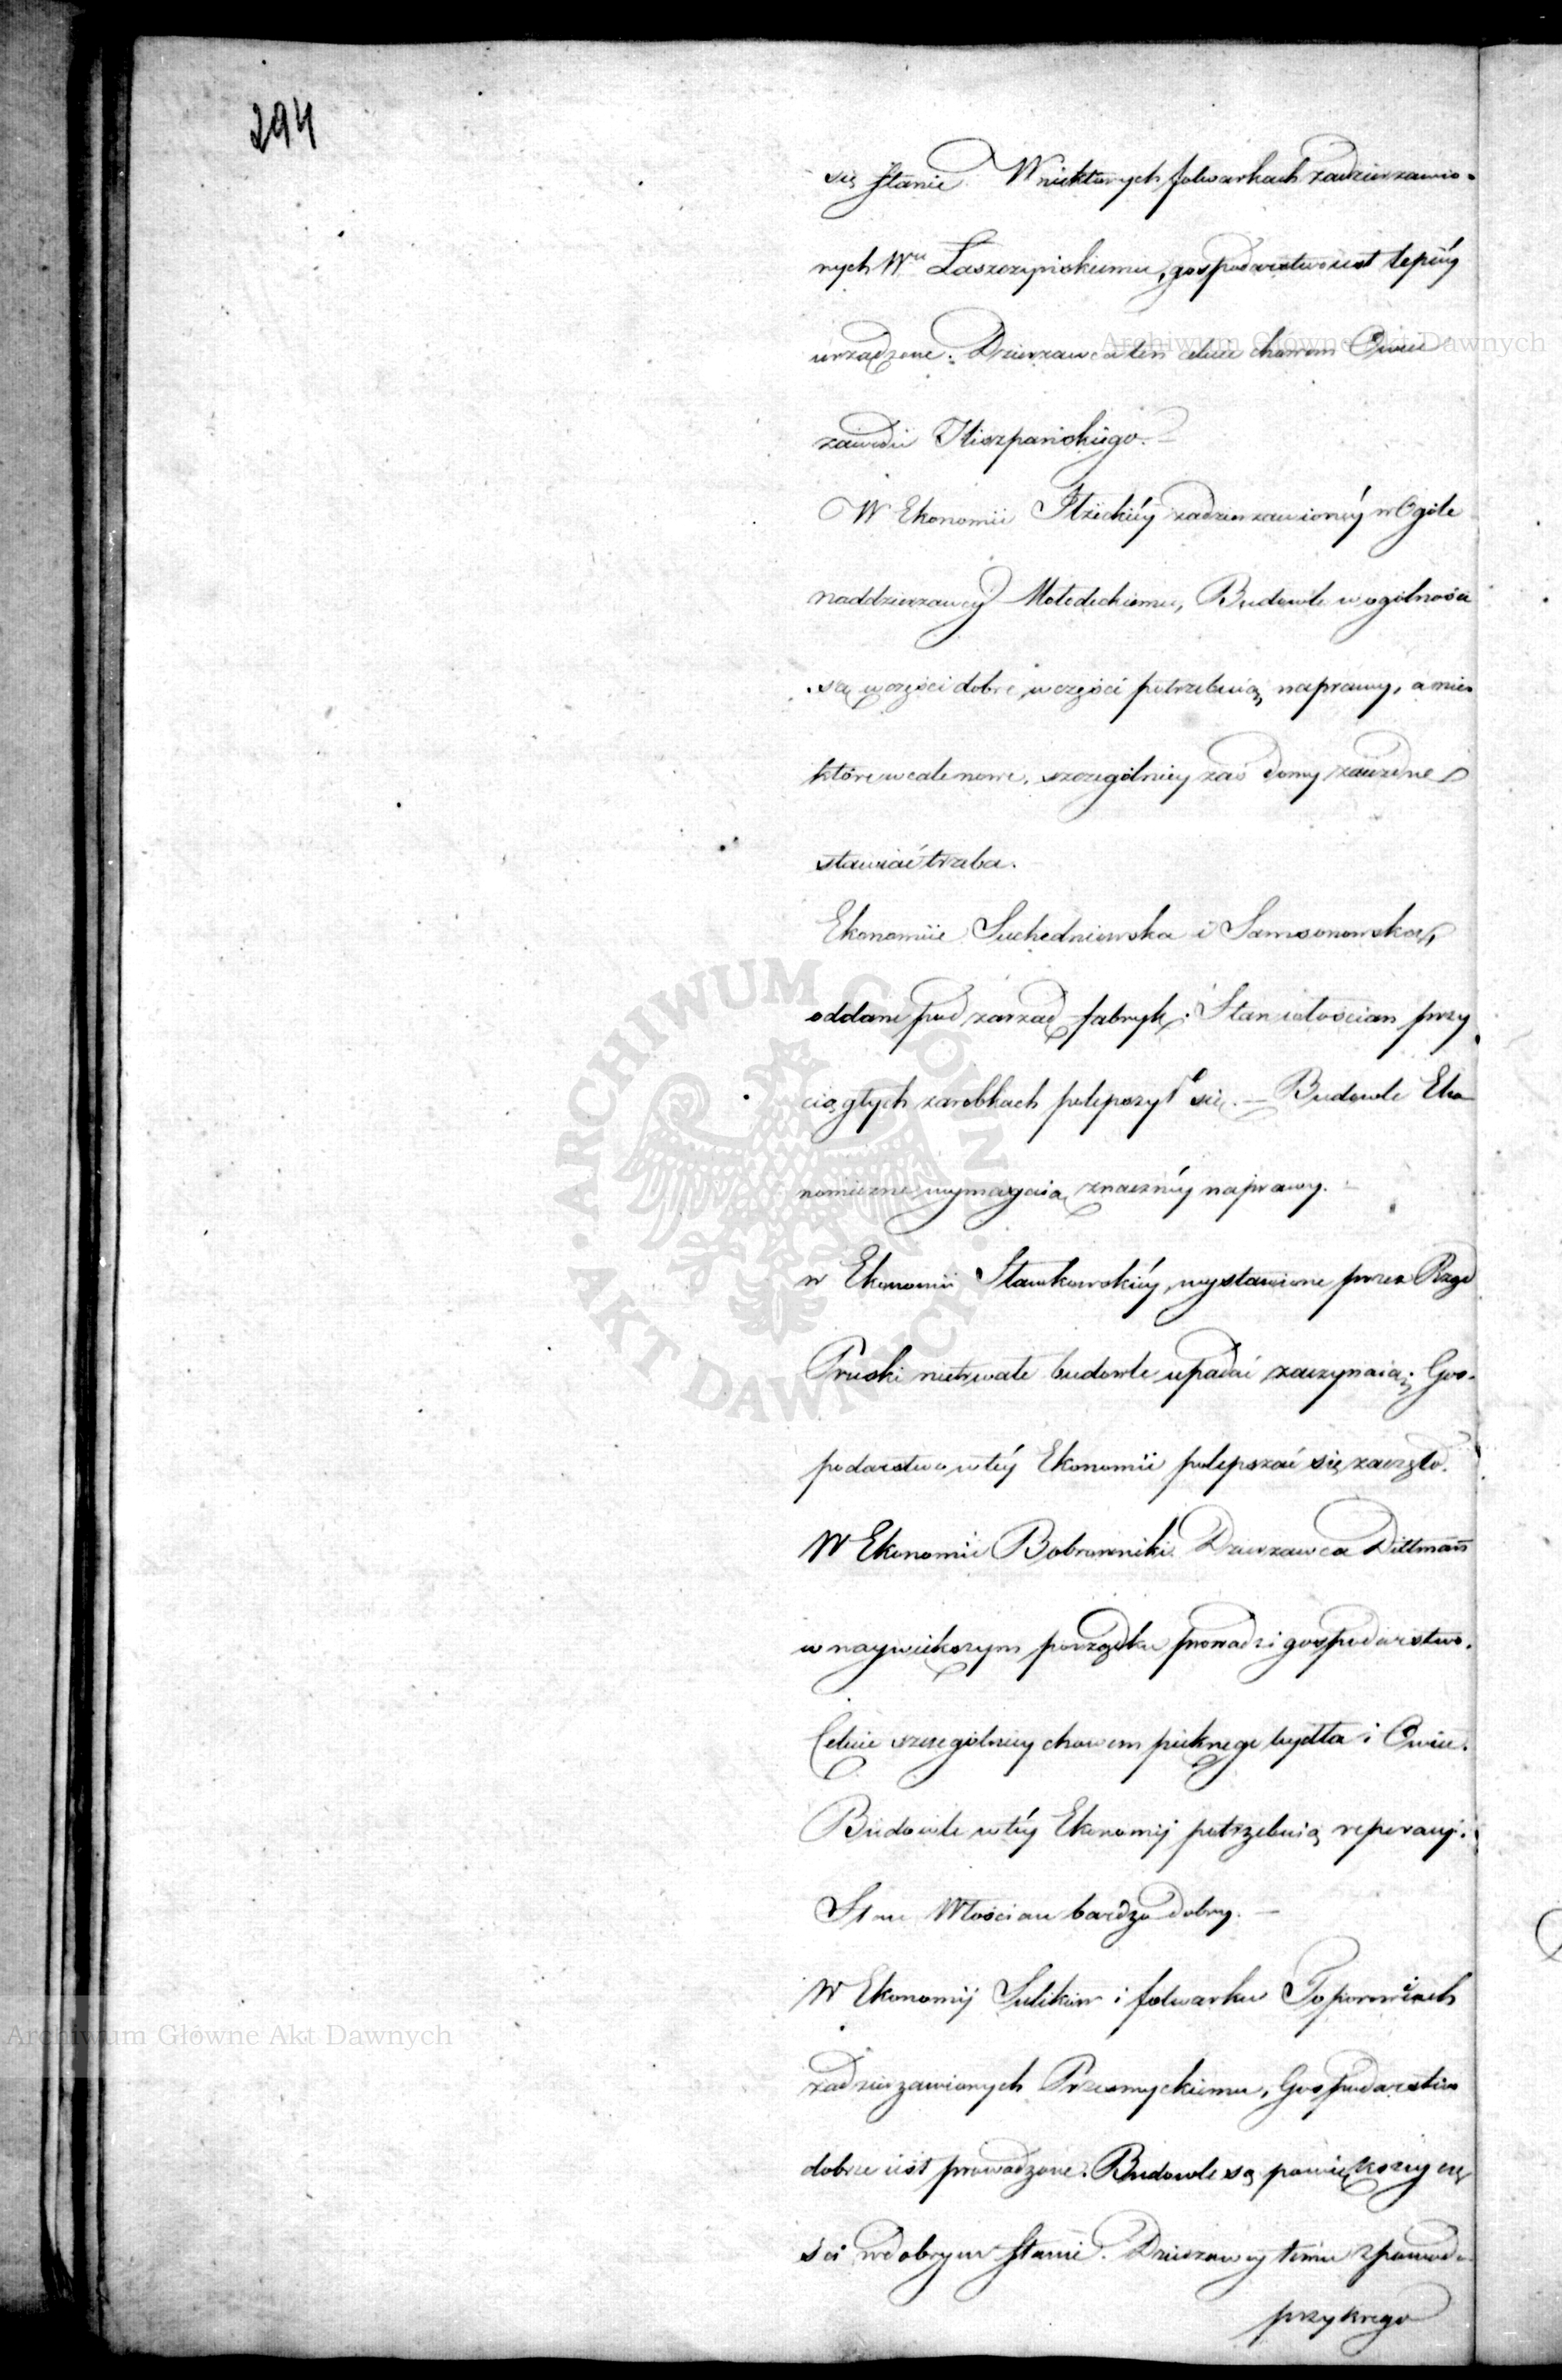 294
się stanie. W niektórych folwarkach zadzierzawio-
nych Wu Laszczyńskiemu, gospodarstwo iest lepiéy
urządzone. Dzierzawca ten celuie chowem Owiec
zawodu Hiszpańskiego. –
W Ekonomii Iłżeckiéy zadzierzawionéy w Ogóle
naddzierzawcy Mołodeckiemu, Budowle w ogólności
są w części dobre, w części potrzebuią naprawy, a nie-
które wcale nowe, szczególniey zaś domy zaiezdne
stawiać trzeba.
Ekonomiie Suchedniowska i Samsonowska,
oddane pod zarząd fabryk. Stan włościan przy
ciągłych zarobkach polepszył się. – Budowle Eko-
nomiczne wymagaią znacznéy naprawy. –
w Ekonomii Sławkowskiéy, wystawione przez Rząd
Pruski nietrwałe budowle upadać zaczynaią. Gos-
podarstwo w téy Ekonomii polepszać się zaczęło.
W Ekonomii Bobrowniki Dzierzawca Dittmann
w naywiększym porządku prowadzi gospodarstwo.
Celuie szczególniey chowem pięknego bydła i Owiec.
Budowle w téy Ekonomij potrzebuią reperacyi.
Stan Włościan bardzo dobry. –
W Ekonomij Sulików i folwarku Toporowicach
zadzierzawionych Przesmyckiemu, Gospodarstwo
dobrze iest prowadzone. Budowle są po większey czę
ści w dobrym stanie. Dzierzawcy temu z powodu
przykrego
Archiwum Główne Akt Dawnych
Archiwum Główne Akt Dawnych
ARCHIWUM GŁÓWNE AKT DAWNYCH